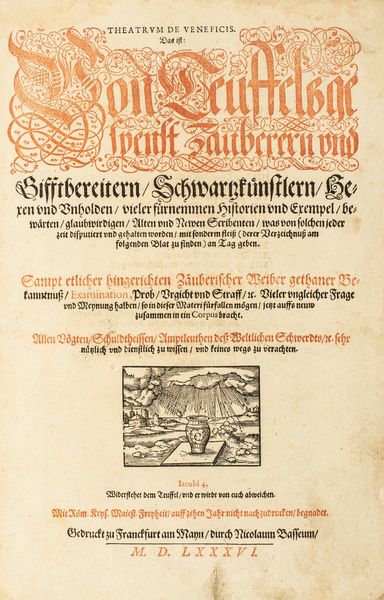 THEATRVM DE VENEFICIS.
Das ist:
Von Teuffelsge
spenst Zauberern vnd
Gifftbereitern / Schwartzkünstlern / He-
xen vnd Vnholden / vieler fürnemmen Historien vnd Exempel / be-
wärten / glaubwirdigen / Alten vnd Newen Scribenten / was von solchen jeder
zeit disputiert vnd gehalten worden / mit sonderm fleiß (derer Verzeichnuß am
folgenden Blat zu finden) an Tag geben.
Sampt etlicher hingerichten Zäuberischer Weiber gethaner Be-
kanntnuß / Examination / Prob / Vrgicht vnd Straff / ꝛc. Vieler vngleicher Frage
vnd Meynung halben / so in dieser Materi fürfallen mögen / jetzt auffs neuw
zusammen in ein Corpus bracht.
Allen Vögten / Schuldtheissen / Amptleuthen deß Weltlichen Schwerdts / ꝛc. sehr
nützlich vnd dienstlich zu wissen / vnd keines wegs zu verachten.
Iacobi 4.
Widerstehet dem Teuffel / vnd er wirdt von euch abweichen.
Mit Röm. Keys. Maiest. Freyheit / auff zehen Jahr nicht nachzudrucken / begnadet.
Gedruckt zu Franckfurt am Mayn / durch Nicolaum Basseum /
M. D. LXXXVI.